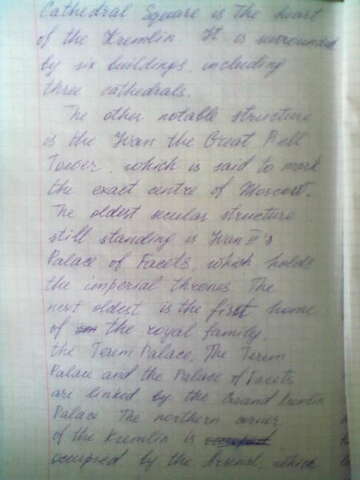 Cathedral Square is the heart
of the Kremlin. It is surrounded
by six buildings, including
three cathedrals.
The other notable structure
is the Ivan the Great Bell
Tower, which is said to mark
the exact centre of Moscow.
The oldest secular structure
still standing is Ivan III's
Palace of Facets, which holds
the imperial thrones. The
next oldest is the first home
of the royal family,
the Terem Palace. The Terem
Palace and the Palace of Facets
are linked by the Grand Kremlin
Palace. The northern corner
of the Kremlin is
occupied by the Arsenal, which